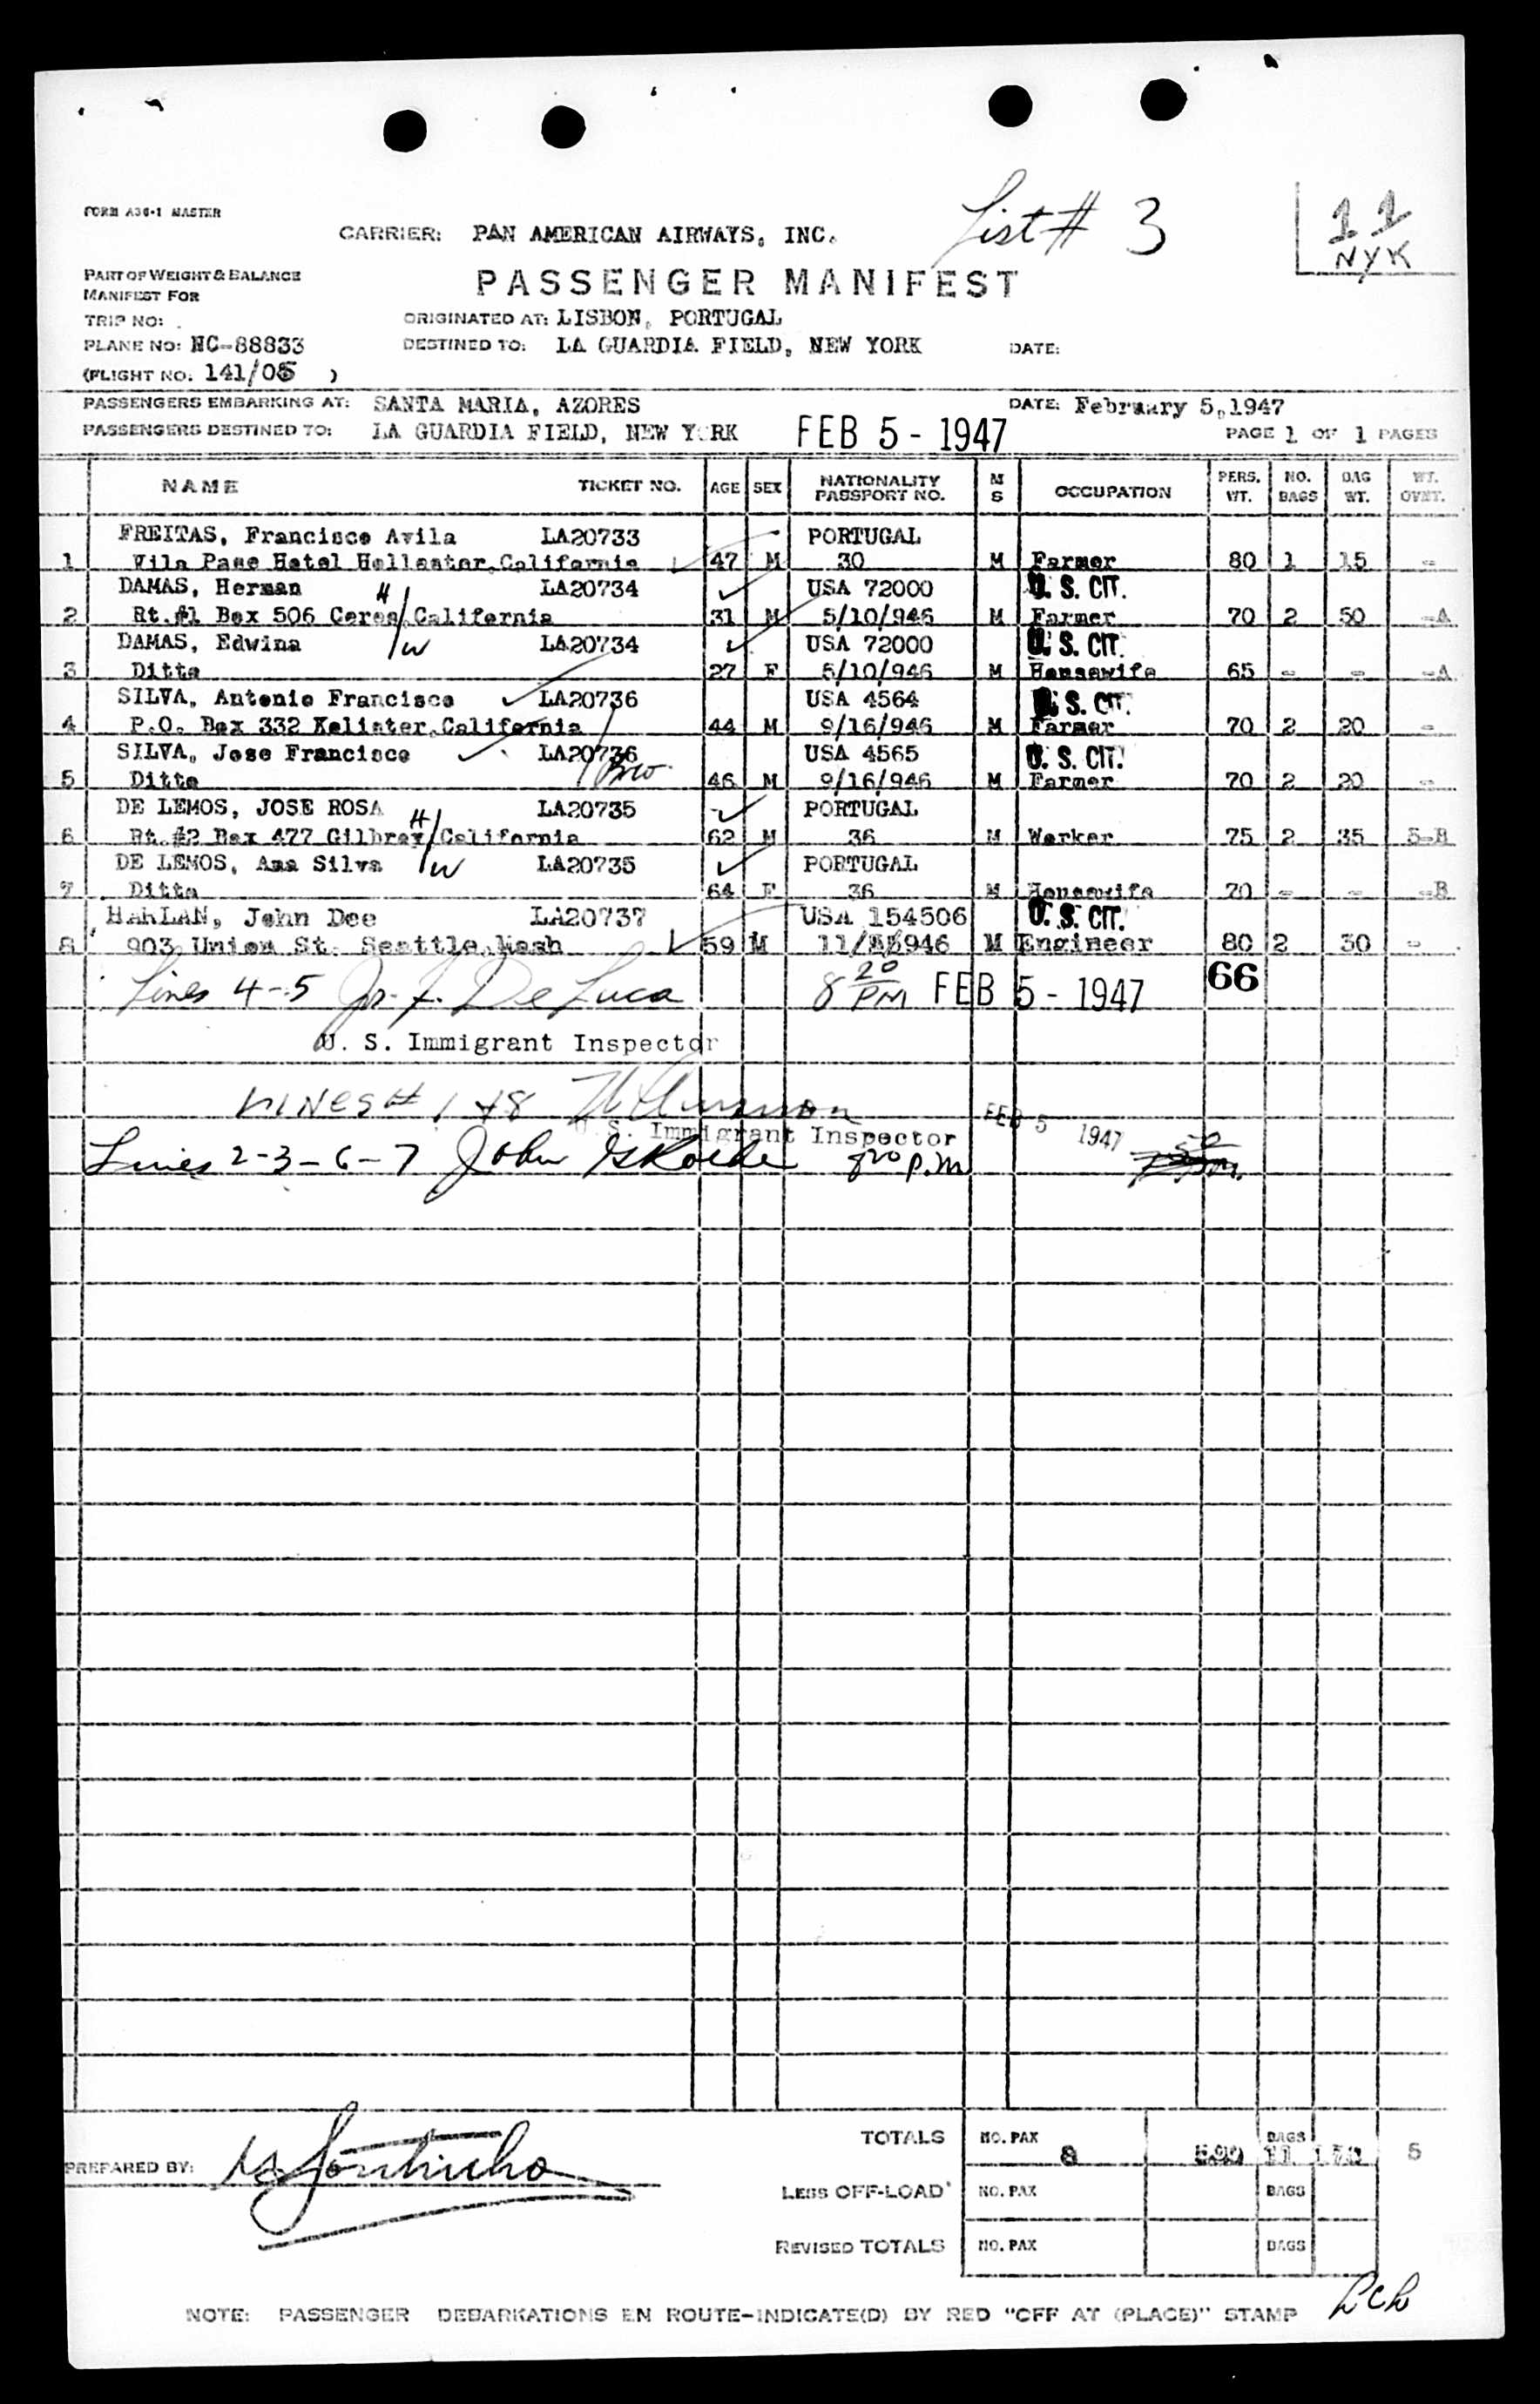 List # 3
11
NYK
FORM A36-1 MASTER
CARRIER: PAN AMERICAN AIRWAYS, INC.
PART OF WEIGHT & BALANCE
MANIFEST FOR
PASSENGER MANIFEST
TRIP NO:
ORIGINATED AT: LISBON, PORTUGAL
PLANE NO: NC-88833
DESTINED TO: LA GUARDIA FIELD, NEW YORK DATE:
(FLIGHT NO. 141/05 )
PASSENGERS EMBARKING AT: SANTA MARIA, AZORES DATE: February 5,1947
PASSENGERS DESTINED TO: LA GUARDIA FIELD, NEW Y RK FEB 5 - 1947 PAGE 1 OF 1 PAGES
NAME TICKET NO. AGE SEX NATIONALITY PASSPORT NO. M S OCCUPATION PERS. WT. NO. BAGS BAG WT. WT. OVWT.
FREITAS, Francisco Avila LA20733 PORTUGAL
1 Vila Pase Hotel Hollester,California 47 M 30 M Farmer 80 1 15 -
DAMAS, Herman H LA20734 USA 72000 U. S. CIT.
2 Rt.#1 Box 506 Ceres,California 31 M 5/10/946 M Farmer 70 2 50 -A
DAMAS, Edwina W LA20734 USA 72000 U. S. CIT.
3 Ditto 27 F 5/10/946 M Housewife 65 - - -A
SILVA, Antonio Francisco LA20736 USA 4564 U. S. CIT.
4 P.O. Box 332 Kelister,California 44 M 9/16/946 M Farmer 70 2 20 -
SILVA, Jose Francisco LA20736 USA 4565 U. S. CIT.
5 Ditto Bro 46 M 9/16/946 M Farmer 70 2 20 -
DE LEMOS, JOSE ROSA H LA20735 PORTUGAL
6 Rt.#2 Box 477 Gilbrey,California 62 M 36 M Worker 75 2 35 5-B
DE LEMOS, Ana Silva W LA20735 PORTUGAL
7 Ditto 64 F 36 M Housewife 70 - - -B
HARLAN, John Dee LA20737 USA 154506 U. S. CIT.
8 903 Union St. Seattle,Wash 59 M 11/ 946 M Engineer 80 2 30 -
Lines 4-5 Jr. F. De Luca 8 20 PM FEB 5 - 1947 66
U. S. Immigrant Inspector
LINES # 1 + 8 FEB 5 1947
U. S. Immigrant Inspector
Lines 2-3-6-7 John 820 p.m
TOTALS NO. PAX 8 BAGS 11 5
PREPARED BY:
LESS OFF-LOAD NO. PAX BAGS
REVISED TOTALS NO. PAX BAGS
NOTE: PASSENGER DEBARKATIONS EN ROUTE-INDICATE(D) BY RED "OFF AT (PLACE)" STAMP